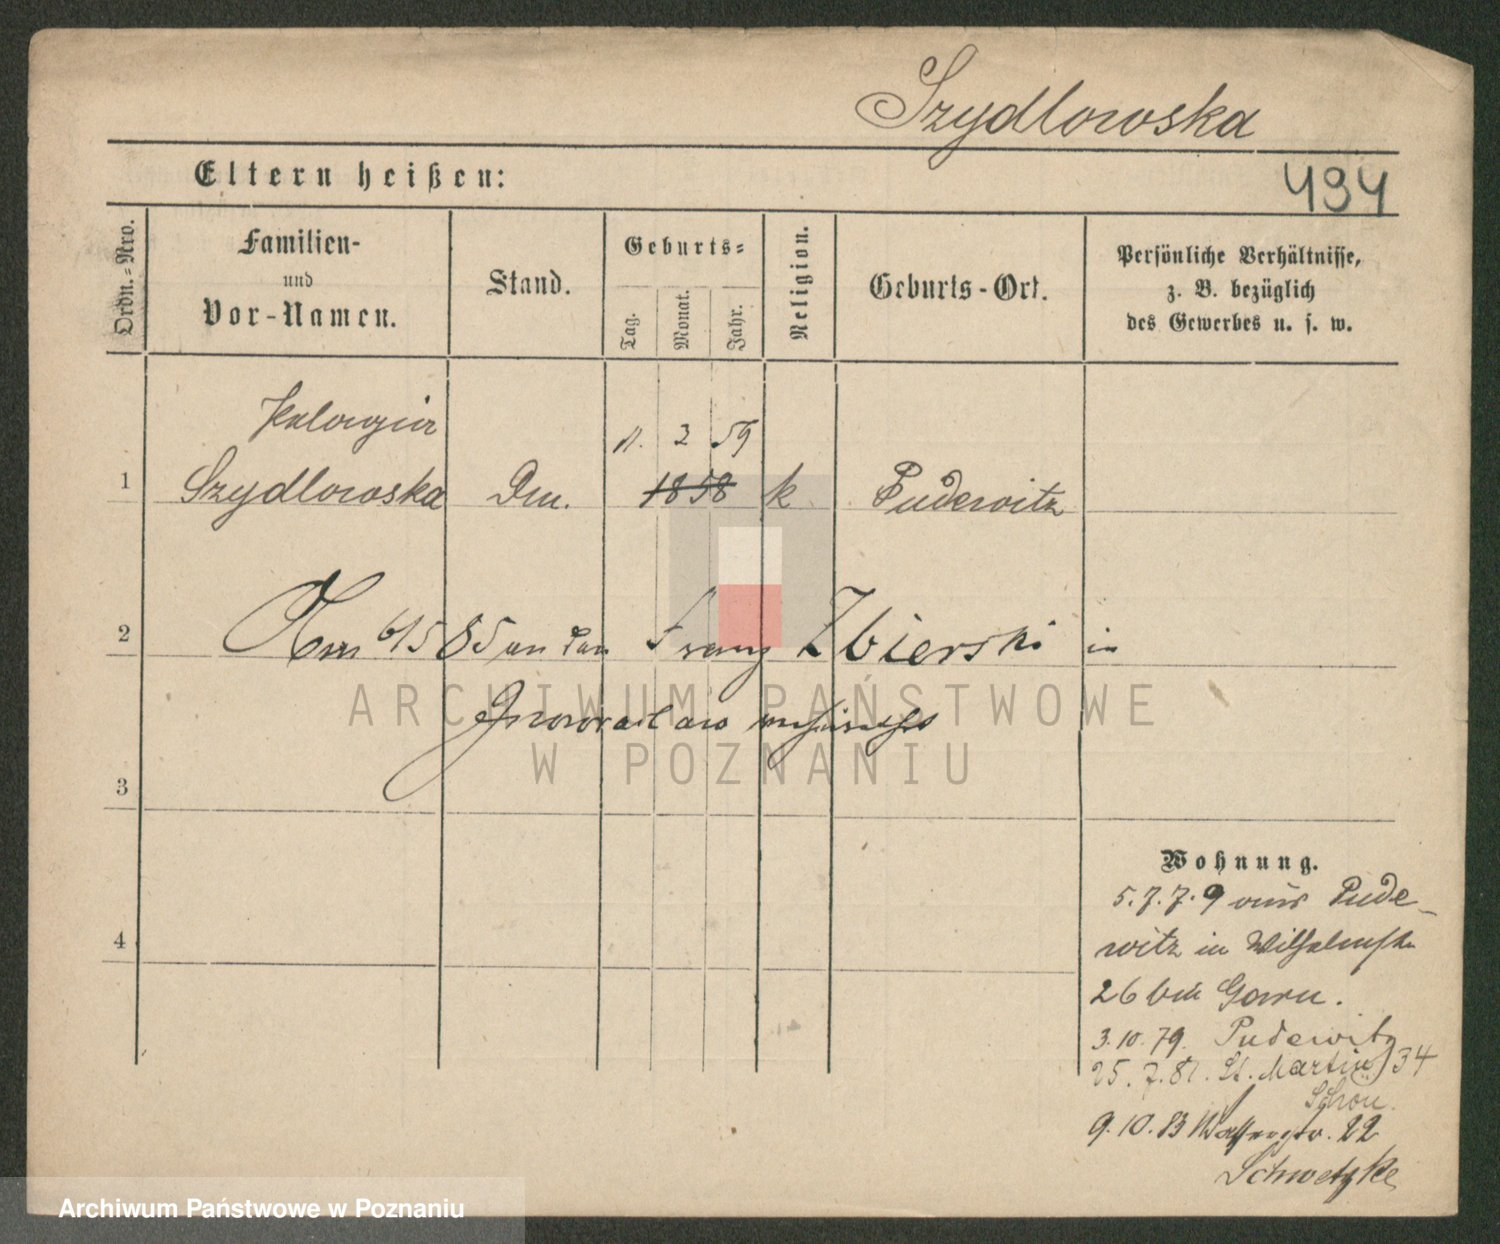 Szydlowska
Eltern heißen:
494
Ordn.-Nro.
Familien-
und
Vor-Namen.
Stand.
Geburts-
Tag.
Monat.
Jahr.
Religion.
Geburts-Ort.
Persönliche Verhältnisse,
z. B. bezüglich
des Gewerbes u. s. w.
Pelagia
11. 2 59
1
Szydlowska
1858
k
Pudewitz
2
Am 6/5 85 an den Franz Zbierski in
Inowraclaw verheirathet
ARCHIWUM PAŃSTWOWE
W POZNANIU
3
4
Wohnung.
5. 7. 79 aus Pude-
witz in Wilhelmstr
26 bei
3. 10. 79. Pudewitz
25. 7. 81. St. Martin 34
Schön.
9. 10. 83 Wasserstr. 22
Schwetzke
Archiwum Państwowe w Poznaniu